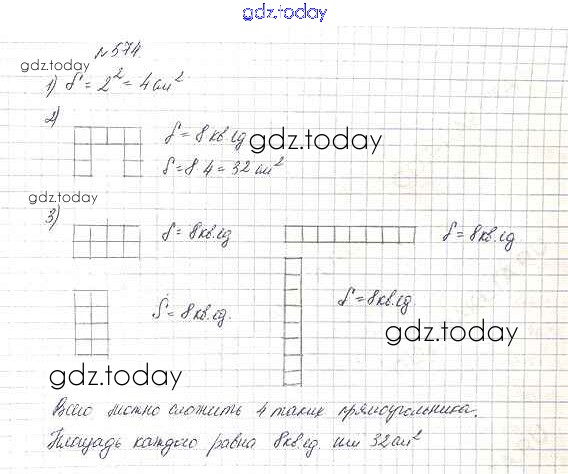 gdz.today
№574.
gdz.today
1) S = 2² = 4 см²
2)
S = 8 кв.ед
gdz.today
S = 8 4 = 32 см²
gdz.today
3)
S = 8 кв.ед
S = 8 кв.ед
S = 8 кв.ед.
S = 8 кв.ед.
gdz.today
gdz.today
Всего можно сложить 4 таких прямоугольника.
Площадь каждого равна 8 кв.ед. или 32 см²